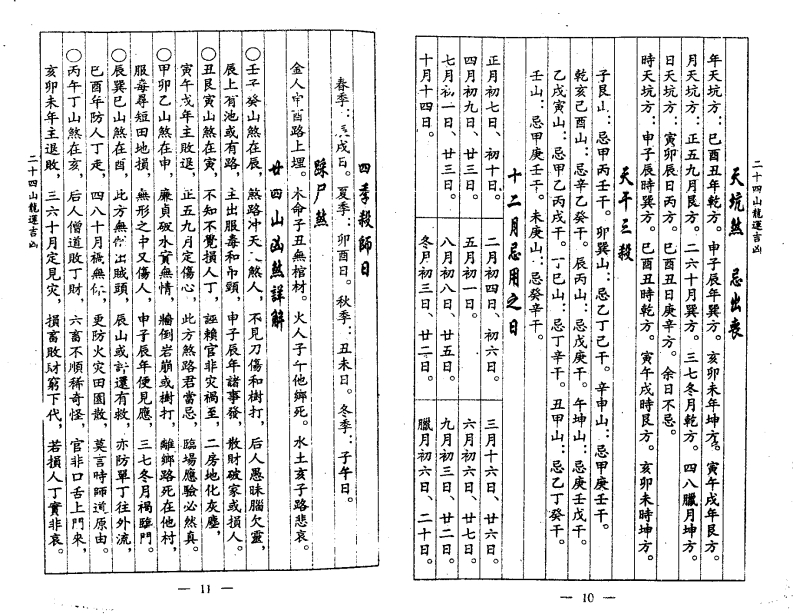 二十四山龍運吉凶
天坑煞 忌出喪
年天坑方：巳酉丑年乾方。申子辰年巽方。亥卯未年坤方。寅午戌年艮方。
月天坑方：正五九月艮方。二六十月巽方。三七冬月乾方。四八臘月坤方。
日天坑方：寅卯辰日丙方。巳酉丑日庚辛方。余日不忌。
時天坑方：申子辰時巽方。巳酉丑時乾方。寅午戌時艮方。亥卯未時坤方。
天干三殺
子艮山：忌甲丙壬干。卯巽山：忌乙丁己干。辛申山：忌甲庚壬干。
乾亥己酉山：忌辛乙癸干。辰丙山：忌戊庚干。午坤山：忌庚壬戊干。
乙戌寅山：忌甲乙丙戌干。丁巳山：忌丁辛干。丑甲山：忌乙丁癸干。
壬山：忌甲庚壬干。未庚山：忌癸辛干。
十二月忌用之日
正月初七日、初十日。 二月初四日、初六日。 三月十六日、廿六日。
四月初九日、廿三日。 五月初一日。 六月初六日、廿七日。
七月初一日、廿三日。 八月初八日、廿五日。 九月初三日、廿二日。
十月十四日。 冬月初三日、廿二日。 臘月初六日、二十日。
— 10 —
四季殺師日
春季：戌日。夏季：卯酉日。秋季：丑未日。冬季：子午日。
踩尸煞
金人申酉路上埋。木命子丑無棺材。火人子午他鄉死。水土亥子路悲哀。
廿四山凶煞詳解
○壬子癸山煞在辰，煞路沖天煞人，不見刀傷和樹打，后人愚昧腦欠靈，
辰上有池或有路，主出服毒和吊頸，申子辰年諸事發，散財破家或損人。
○丑艮寅山煞在寅，不知不覺損人丁，誣賴官非灾禍至，二房地化灰塵，
寅午戌年主敗退，正五九月定傷心，此方煞路君當忌，臨場應驗必然真。
○甲卯乙山煞在申，廉貞破水實無情，牆倒岩崩或樹打，離鄉路死在他村，
服毒尋短田地損，無形之中又傷人，申子辰年便見應，三七冬月禍臨門。
○辰巽巳山煞在酉，此方無出賊頭，辰山或許還有救，亦防單丁往外流，
巳酉年防人丁走，四八十月極無，更防火灾田園散，莫言時師道原由。
○丙午丁山煞在亥，后人僧道敗丁財，六畜不順稀奇怪，官非口舌上門來，
亥卯未年主退敗，三六十月定見灾，損畜敗財窮下代，若損人丁實非哀。
二十四山龍運吉凶
— 11 —